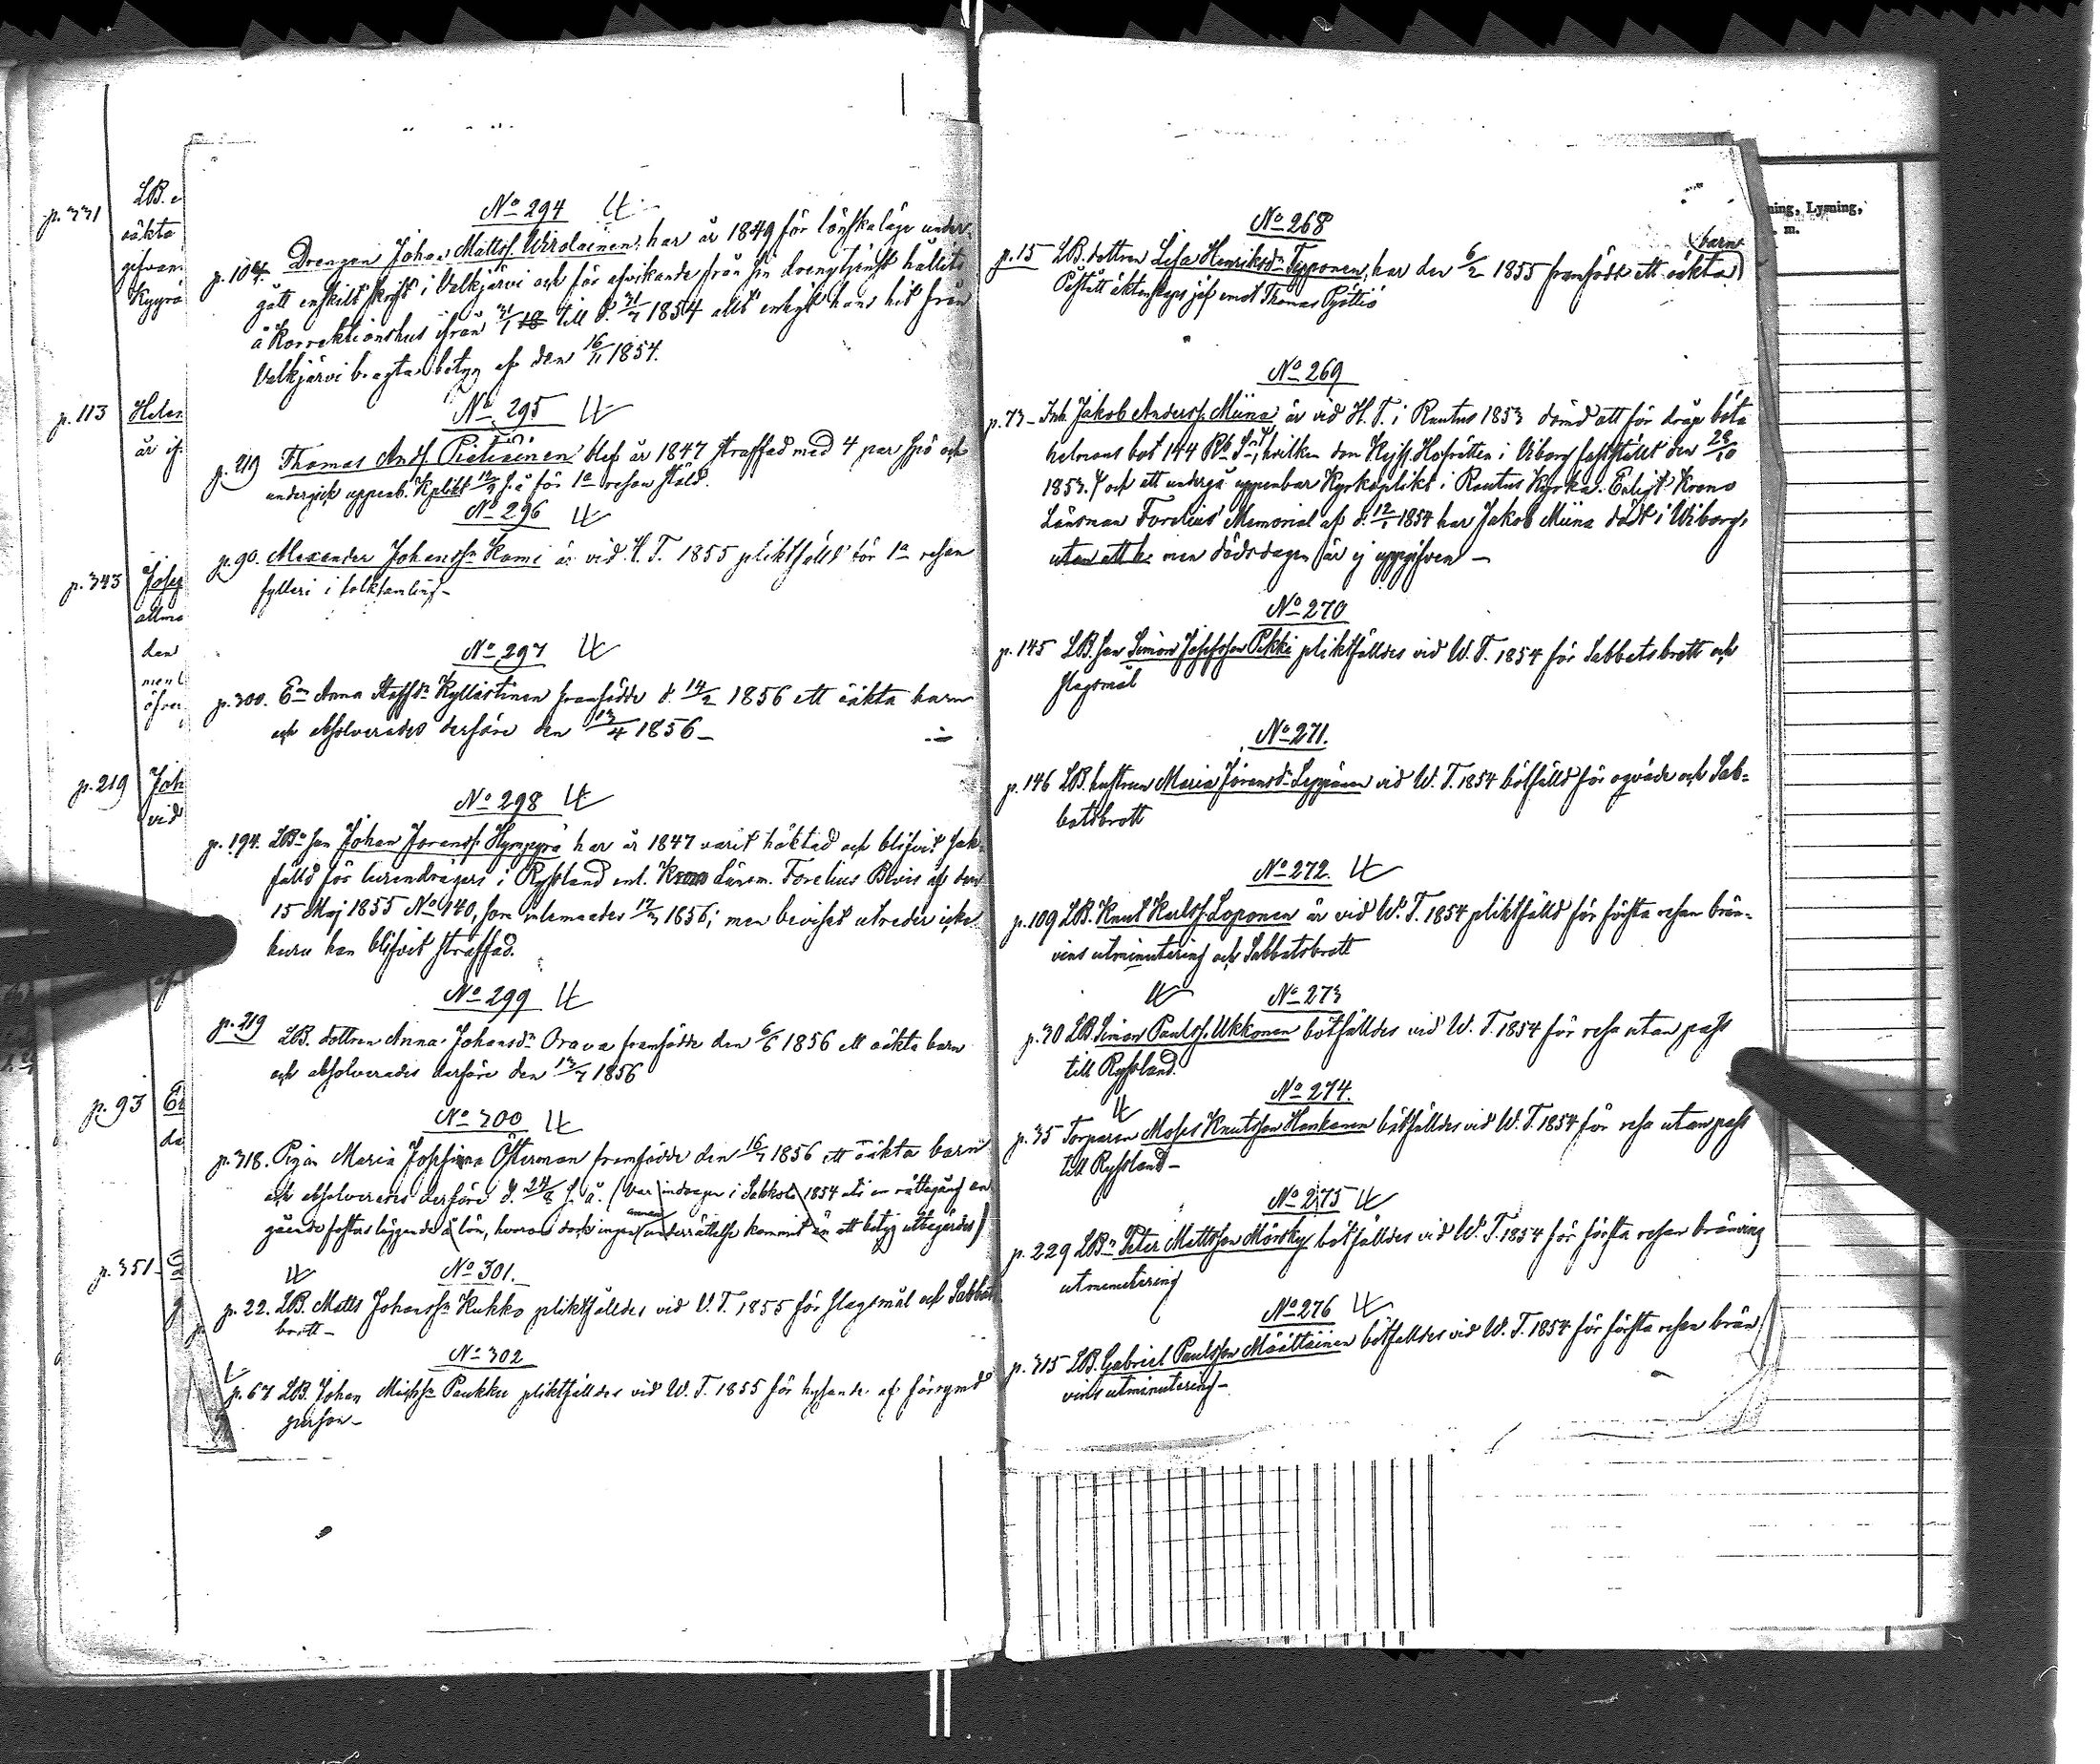 p. 331
LB.
oäkta
Kyyrö
p. 113
år
p. 343
Josef
allmo
den
p. 219
Joh
vid
p. 93
p. 351
No 294
p. 104. Drengen Johan Mattss. Wirolainen, har år 1849 för lönskaläge under-
gått enskilt skrift i Valkjärvi och för afvikande från sin drengtjenst hållits
å Korrektionshus ifrån 31/1 18 till d. 31/7 1854 allt enligt hans hit från
Valkjärvi bragta betyg af den 16/11 1854.
No 295
p. 219 Thomas And. Pietiäinen blef år 1847 straffad med 4 par spö och
undergick uppenb. K.plikt 12/9 s. å. för 1a resan stöld.
No 296
p. 90. Alexander Johanssn Kami är vid H. T. 1855 pliktfälld för 1a resan
fylleri i folksamling -
No 297
p. 300. En Anna Staffsdr Kyllästinen framfödde d. 14/2 1856 ett oäkta barn
och absolverades derföre den 13/4 1856 -
No 298
p. 194. LBn son Johan Joranss. Hyppyrä har år 1847 varit häktad och blifvit sak-
fälld för lurendrägeri i Ryssland enl. Krono Länsm. Forelius Bevis af den
15 Maj 1855 No 140, som inlemnades 17/3 1856; men beviset utreder icke
huru han blifvit straffad.
No 299
p. 219 LB. dottren Anna Johansdr Orava framfödde den 6/6 1856 ett oäkta barn
och absolverades derföre den 13/7 1856
No 300
p. 318. Pigan Maria Josefina Österman framfödde den 16/7 1856 ett oäkta barn
och absolverades derföre d. 24/8 s. å. (Var indragen i Sakkola 1854 uti en rättegång an
gående fosters läggande å lön, hvarom dock ingen annan underrättelse kommit än att betyg utbegärdes)
No 301.
p. 22. LB. Matts Johanssn Kukko pliktfälldes vid V. T. 1855 för slagsmål och Sabbats
brott -
No 302
p. 67 LB. Johan Mickssn Paukku pliktfälldes vid W. T. 1855 för hysande af förrymd
person -
ning, Lysning,
m.
No 268
p. 15 LB. dottren Lisa Henriksdr Typponen, har den 6/2 1855 framfödt ett oäkta barn
Påstått äktenskaps jäf emot Thomas Pyöttiö
No 269
p. 73 - Inh. Jakob Anderss. Miina är vid H. T. i Rautus 1853 dömd att för dråp böta
helmans bot 144 Rb. Sr, hvilken dom Kejs. Hofrätten i Viborg fastställt den 28/10
1853. och att undergå uppenbar Kyrkoplikt i Rautus Kyrka. Enligt Krono
Länsman Forelius' Memorial af d. 12/1 1854 har Jakob Miina dödt i Wiborg,
utan att h. men dödsdagen är ej uppgifven -
No 270
p. 145 LB. son Simon Josefsson Pekki pliktfälldes vid W. T. 1854 för Sabbatsbrott och
slagsmål
No 271.
p. 146 LB. hustrun Maria Jöransdr Leppänen vid W. T. 1854 bötfälld för oqväde och Sab-
batsbrott
No 272.
p. 109 LB. Knut Karlss. Loponen är vid W. T. 1854 pliktfälld för första resan brän-
vins utminutering och Sabbatsbrott
No 273
p. 30 LB. Simon Paulss. Ukkonen bötfälldes vid W. T. 1854 för resa utan pass
till Ryssland.
No 274.
p. 35 Torparen Moses Knutsson Hankanen bötfälldes vid W. T. 1854 för resa utan pass
till Ryssland -
No 275
p. 229 LBn Peter Mattsson Mörsky bötfälldes vid W. T. 1854 för första resan bränvins
utminutering
No 276
p. 315 LB. Gabriel Paulsson Määttäinen bötfälldes vid W. T. 1854 för första resan brän
vins utminutering -